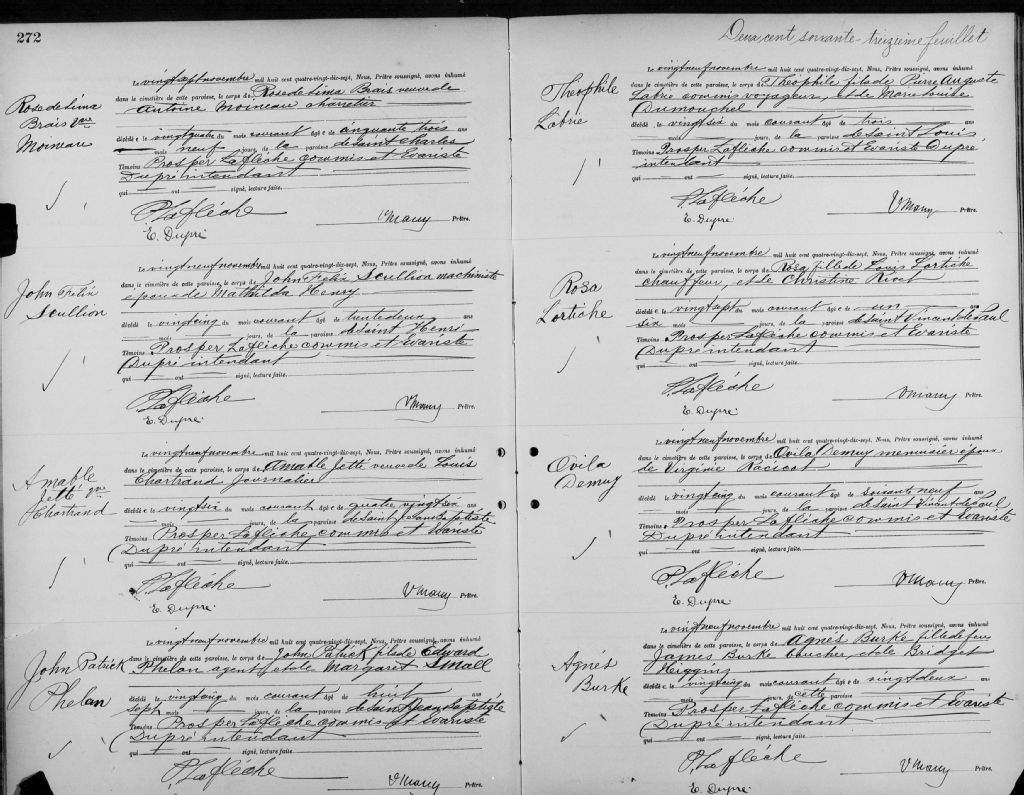 272
Rose de Lima
Brais Vve
Moineau
Le vingt sept novembre mil huit cent quatre-vingt-dix-sept, Nous, Prêtre soussigné, avons inhumé
dans le cimetière de cette paroisse, le corps de Rose de Lima Brais veuve de
Antoine Moineau charretier
décédé e le vingt quatre du mois courant âgé e de cinquante trois ans
neuf mois jours, de la paroisse de Saint Charles
Témoins Prosper Laflèche commis et Evariste
Dupré intendant
qui — ont — signé, lecture faite.
P. Laflèche
E. Dupré
V Many Prêtre.
John Felix
Scullion
Le vingt neuf novembre mil huit cent quatre-vingt-dix-sept, Nous, Prêtre soussigné, avons inhumé
dans le cimetière de cette paroisse, le corps de John Felix Scullion machiniste
époux de Mathilda Henry
décédé le vingt cinq du mois courant âgé de trente deux ans
— mois — jours, de la paroisse de Saint Henri
Témoins Prosper Laflèche commis et Evariste
Dupré intendant
qui — ont — signé, lecture faite.
P. Laflèche
E. Dupré
V Many Prêtre.
Amable
Jetté Vve
Chartrand
Le vingt neuf novembre mil huit cent quatre-vingt-dix-sept, Nous, Prêtre soussigné, avons inhumé
dans le cimetière de cette paroisse, le corps de Amable Jetté veuve de Louis
Chartrand Journalier
décédé e le vingt six du mois courant âgé e de quatre vingt six ans
— mois — jours, de la paroisse de Saint Jean Baptiste
Témoins Prosper Laflèche commis et Evariste
Dupré intendant
qui — ont — signé, lecture faite.
P. Laflèche
E. Dupré
V Many Prêtre.
John Patrick
Phelan
Le vingt neuf novembre mil huit cent quatre-vingt-dix-sept, Nous, Prêtre soussigné, avons inhumé
dans le cimetière de cette paroisse, le corps de John Patrick fils de Edward
Phelan agent et de Margaret Small
décédé le vingt cinq du mois courant âgé de huit ans
sept mois — jours, de la paroisse de Saint Jean Baptiste
Témoins Prosper Laflèche commis et Evariste
Dupré intendant
qui — ont — signé, lecture faite.
P. Laflèche
V Many Prêtre.
Deux cent soixante-treizième feuillet
Théophile
Labrie
Le vingt neuf novembre mil huit cent quatre-vingt-dix-sept, Nous, Prêtre soussigné, avons inhumé
dans le cimetière de cette paroisse, le corps de Théophile fils de Pierre Auguste
Labrie commis voyageur, et de Marie Louise
Dumouchel
décédé le vingt six du mois courant âgé de trois ans
— mois — jours, de la paroisse de Saint Louis
Témoins Prosper Laflèche commis et Evariste Dupré
intendant
qui — ont — signé, lecture faite.
P. Laflèche
E. Dupre
V Many Prêtre.
Rosa
Lortiche
Le vingt neuf novembre mil huit cent quatre-vingt-dix-sept, Nous, Prêtre soussigné, avons inhumé
dans le cimetière de cette paroisse, le corps de Rosa fille de Louis Lortiche
chauffeur, et de Christine Rivet
décédé e le vingt sept du mois courant âgé e de un an
six mois — jours, de la paroisse de Saint Vincent de Paul
Témoins Prosper Laflèche commis et Evariste
Dupré intendant
qui — ont — signé, lecture faite.
P. Laflèche
E. Dupré
V Many Prêtre.
Ovila
Demuy
Le vingt neuf novembre mil huit cent quatre-vingt-dix-sept, Nous, Prêtre soussigné, avons inhumé
dans le cimetière de cette paroisse, le corps de Ovila Demuy menuisier époux
de Virginie Racicot
décédé le vingt cinq du mois courant âgé de soixante neuf ans
— mois — jours, de la paroisse de Saint Vincent de Paul
Témoins Prosper Laflèche commis et Evariste
Dupré intendant
qui — ont — signé, lecture faite.
P. Laflèche
E. Dupre
V Many Prêtre.
Agnès
Burke
Le vingt neuf novembre mil huit cent quatre-vingt-dix-sept, Nous, Prêtre soussigné, avons inhumé
dans le cimetière de cette paroisse, le corps de Agnès Burke fille de feu
James Burke boucher, et de Bridget
Heiggins
décédé e le vingt cinq du mois courant âgé e de vingt deux ans
— mois — jours, de cette paroisse
Témoins Prosper Laflèche commis et Evariste
Dupré intendant
qui — ont — signé, lecture faite.
P. Laflèche
E. Dupre
V Many Prêtre.